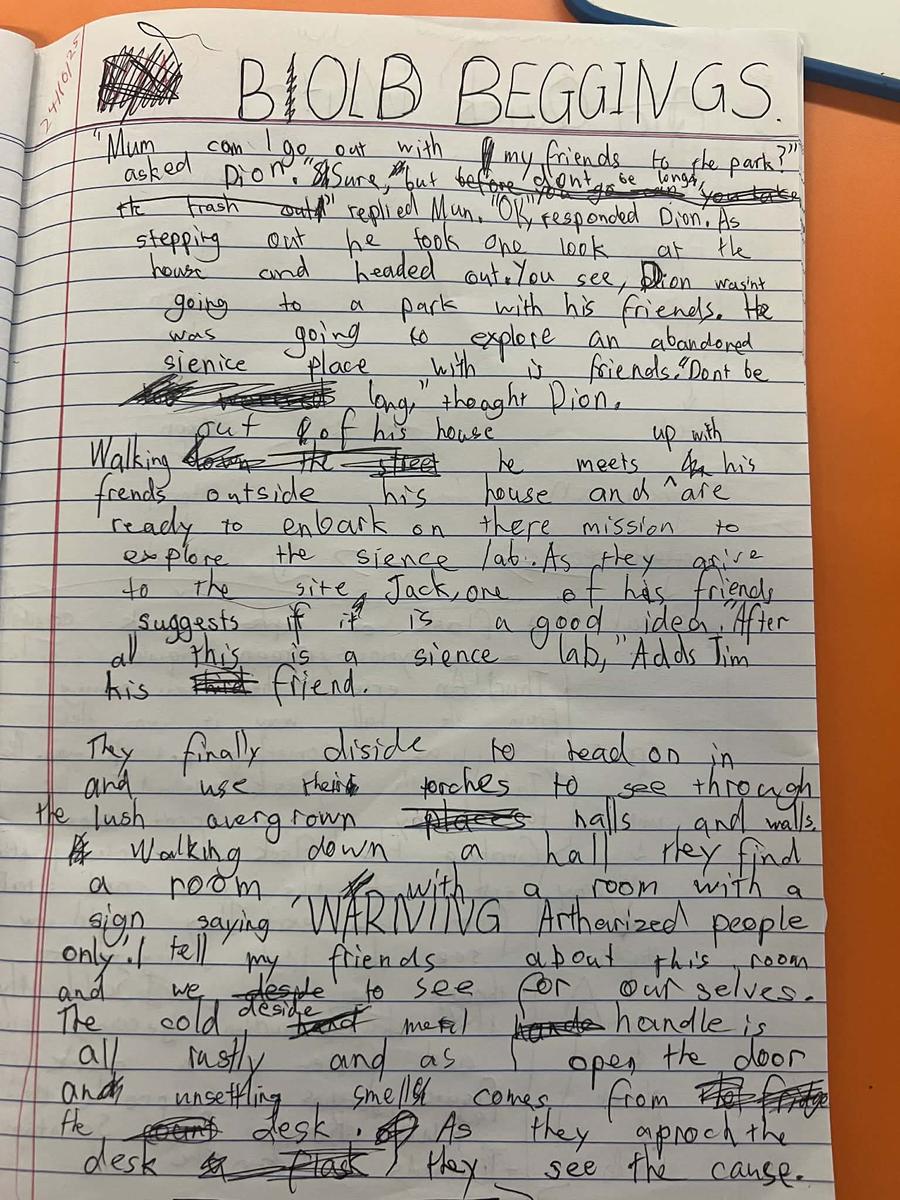 24/10/25
BIOLB BEGGINGS.
"Mum can I go out with my friends to the park?"
asked Dion. "Sure, but before you go out you take dont be long,
the trash out" replied Mum. "OK", responded Dion. As
stepping out he took one look at the
house and headed out. You see, Dion wasn't
going to a park with his friends. He
was going to explore an abandoned
sienice place with is friends. "Dont be
long," thoaght Dion.
out of his house up with
Walking down the street he meets his
frends outside his house and ^ are
ready to enbark on there mission to
explore the sience lab. As they arive
to the site, Jack, one of his friends
suggests if it is a good idea. "After
all this is a sience lab," Adds Jim
his friend.
They finally diside to tead on in
and use their torches to see through
the lush overgrown places halls and walls.
Walking down a hall they find
a room with a room with a
sign saying 'WARNING Artharized people
only'. I tell my friends about this room
and we to see for our selves.
deside
The cold hand metal hande handle is
all rustly and as I open the door
and unsettling smells comes from the fridge
the desk. As they aproch the
desk flask, they see the cause.